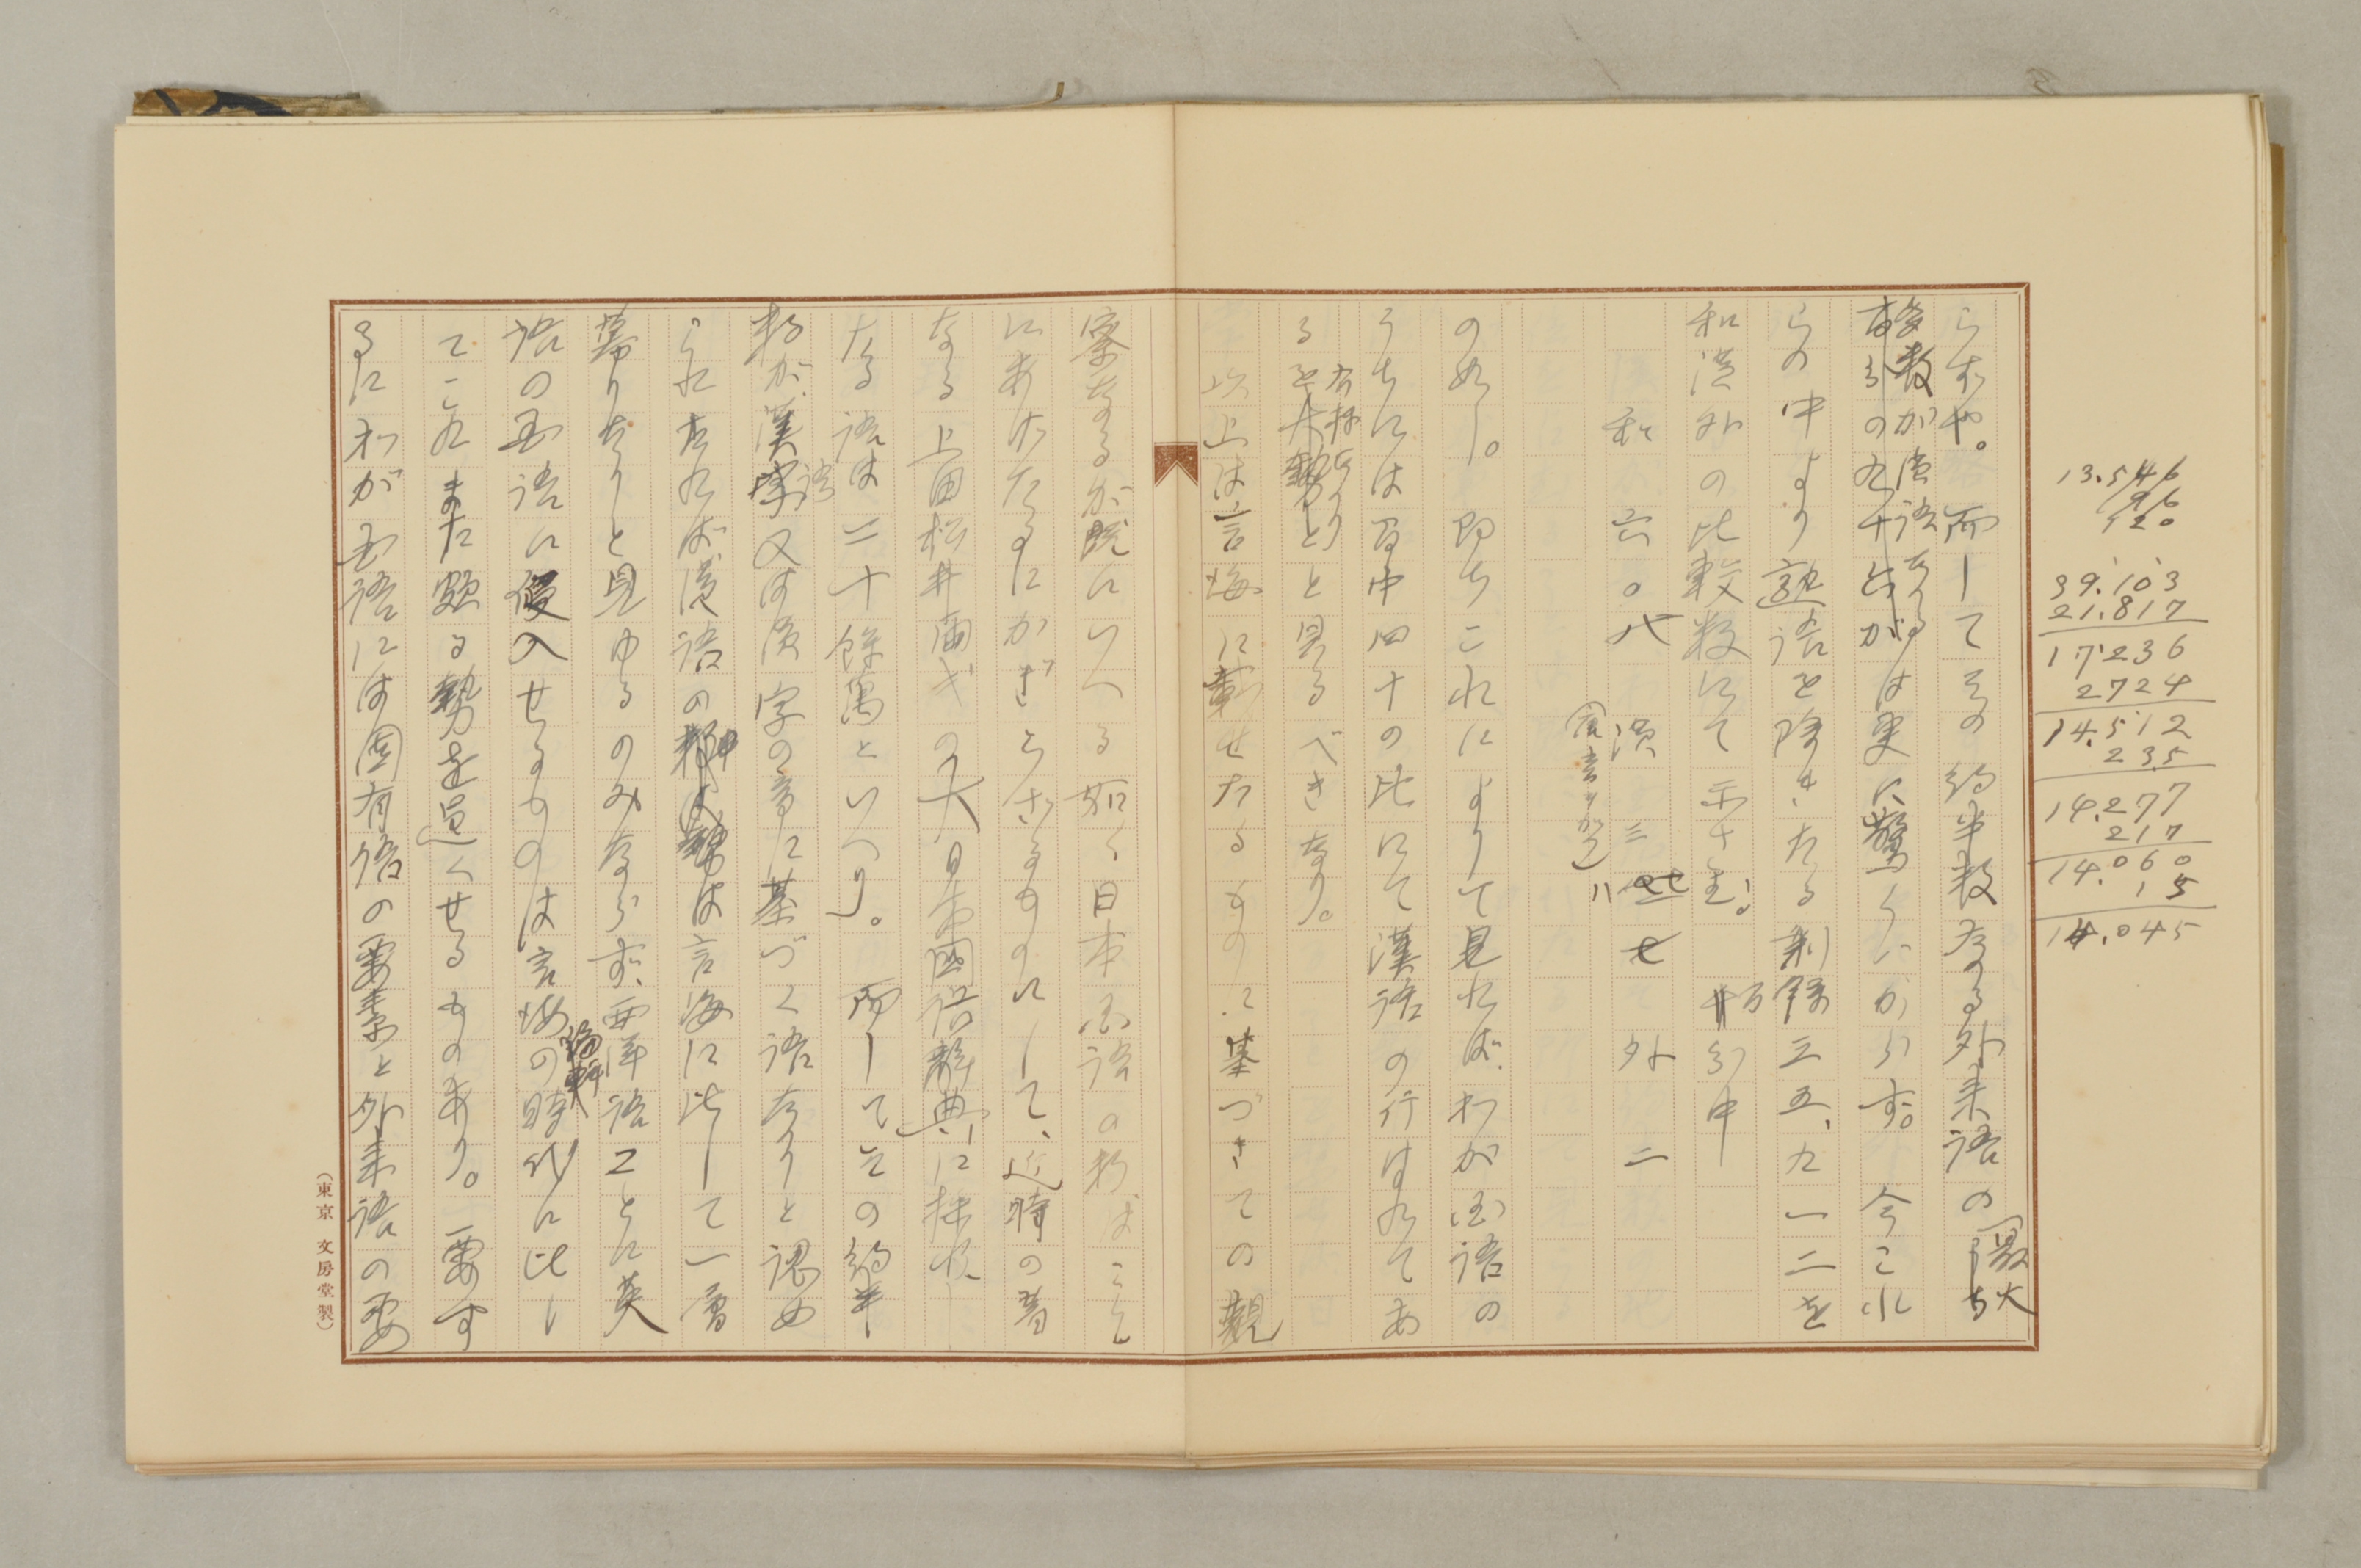 らずや。而してその約半数なる外来語の最大
多数が漢語なるは実に驚くべからず。今これ
らの中より熟語を除きたる剰餘三五、九一二を
和漢外の比較数にて示さむ。百分中
和 六〇 漢 三八 外 二
の如し。即ちこれによりて見ればわが国語の
うちには百中四十の比にて漢語の行はれてあ
ると見るべきなり。
以上は言海に載せたるものに基づきての観
察なるが既にいへる如く日本国語の
にあけたるにかぎらざるものにして、近時の著
なる上田松井両氏の大日本國語辞典に採収し
たる語は二十餘萬といへり。而してその約半
数が漢語又は漢字の音に基づく語なりと認め
られたれば漢語の勢は言海に比して一層
募りたりと見ゆるのみならず、西洋語ことに英
語の国語に侵入せるものは言海の編輯時代に比し
てこれまた頗る勢を逞くせるものあり。要す
るにわが国語には固有語の要素と外来語の要
(東京 文房堂製)
13.546
96
520
39.103
21.817
17.236
2724
14.512
235
14.277
217
14.060
15
14.045